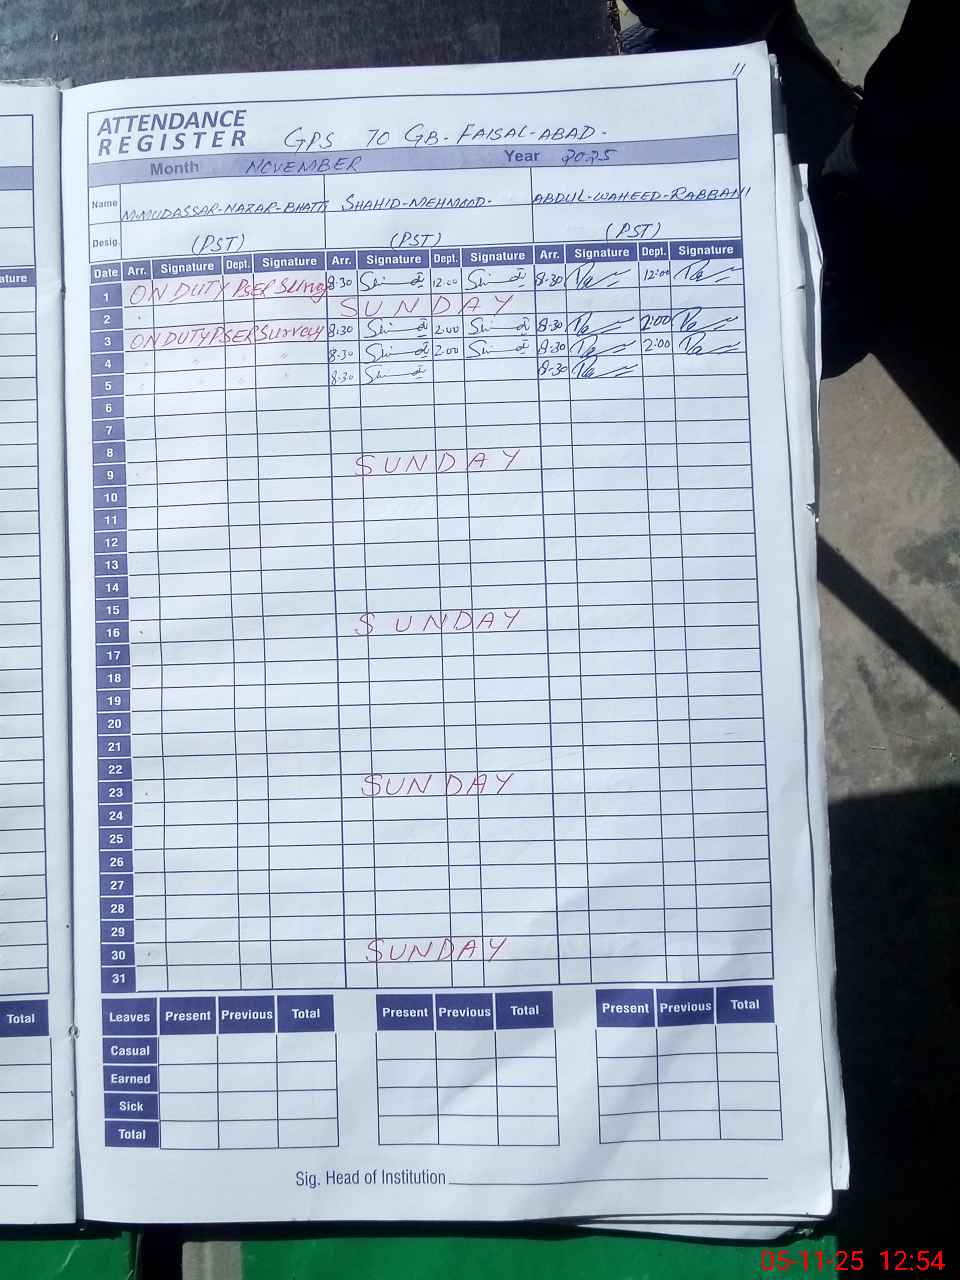 11
ATTENDANCE
REGISTER GPS 70 GB-FAISAL-ABAD-
Month NOVEMBER Year 2025
Name M.MUDASSAR-NAZAR-BHATTI SHAHID-MEHMOOD- ABDUL-WAHEED-RABBANI
Desig. (PST) (PST) (PST)
Date Arr. Signature Dept. Signature Arr. Signature Dept. Signature Arr. Signature Dept. Signature
1 ON DUTY PSER 8.30 12:00 8-30 12:00
2 SUNDAY
3 ON DUTY PSER Survey 8:30 2:00 8-30 2:00
4 " " " " 8-30 2:00 8-30 2:00
5 " " " " 8-30 8-30
6
7
8
9 SUNDAY
10
11
12
13
14
15
16 SUNDAY
17
18
19
20
21
22
23 SUNDAY
24
25
26
27
28
29
30 SUNDAY
31
Leaves Present Previous Total Present Previous Total Present Previous Total
Casual
Earned
Sick
Total
Sig. Head of Institution
ature
Total
05-11-25 12:54